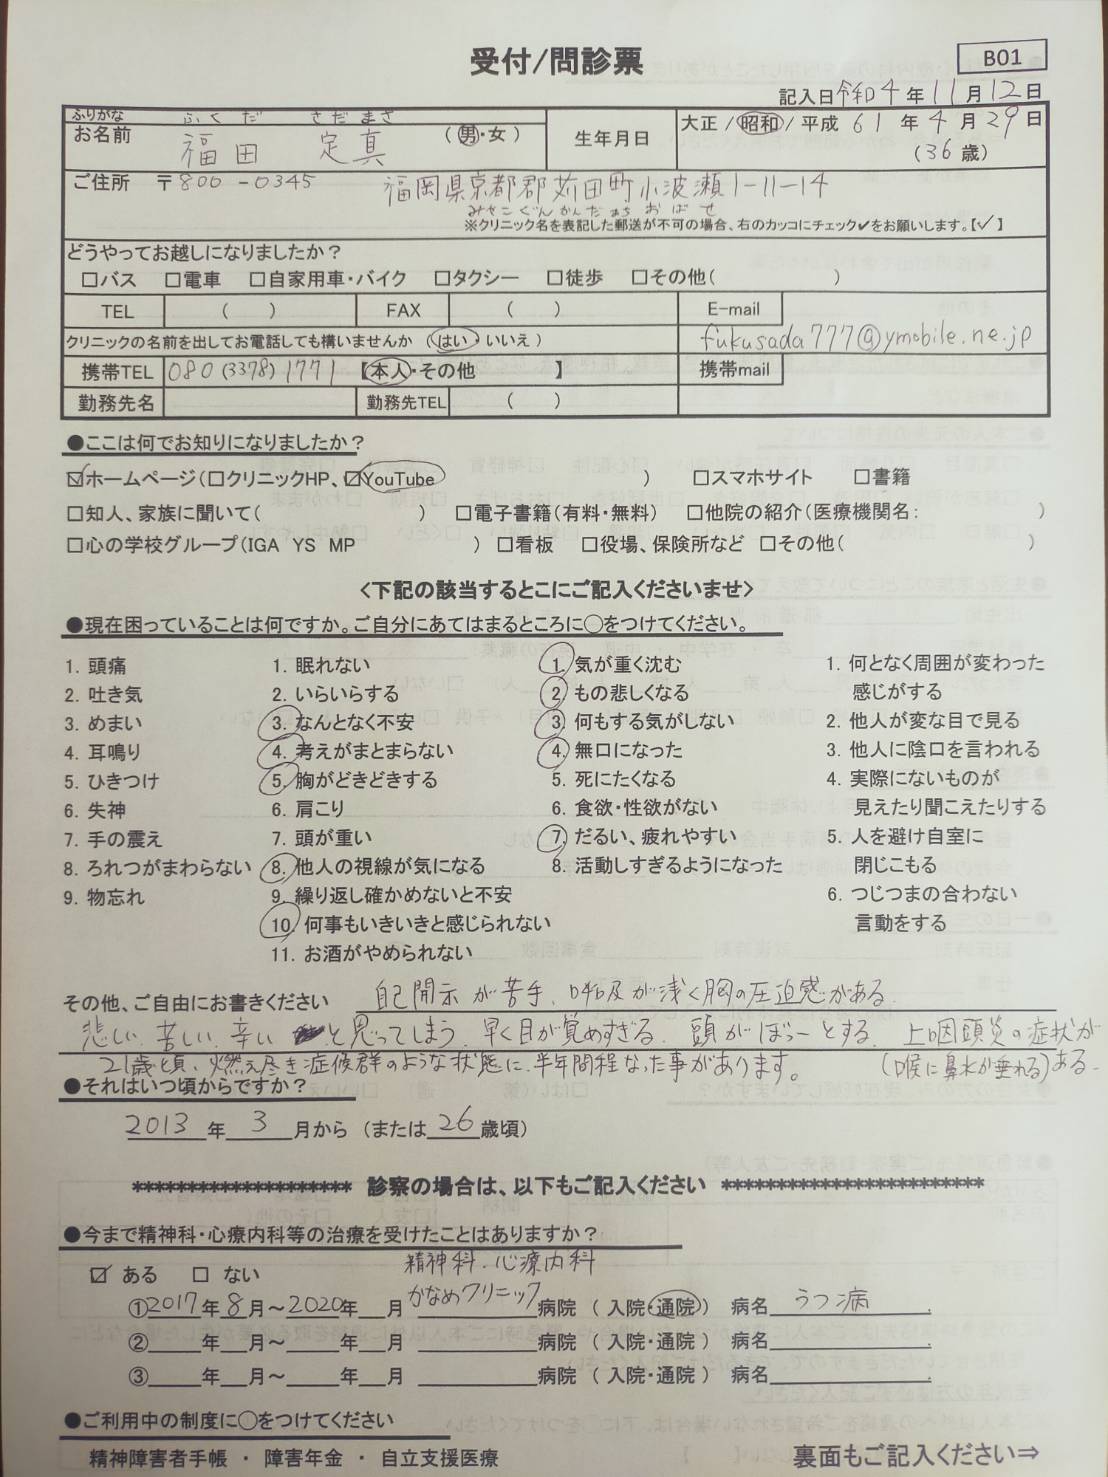 受付/問診票
B01
記入日 令和4年11月12日
ふりがな ふくだ さだまさ
お名前 福田 定真 (男・女)
生年月日 大正/昭和/平成 61年4月29日
(36歳)
ご住所 〒800-0345 福岡県京都郡苅田町小波瀬1-11-14
みやこぐんかんだまち おばせ
※クリニック名を表記した郵送が不可の場合、右のカッコにチェック✔をお願いします。【✓】
どうやってお越しになりましたか？
□バス □電車 □自家用車・バイク □タクシー □徒歩 □その他( )
TEL ( ) FAX ( ) E-mail
クリニックの名前を出してお電話しても構いませんか (はい・いいえ) fukusada777@ymobile.ne.jp
携帯TEL 080(3378)1771 【本人・その他 】 携帯mail
勤務先名 勤務先TEL ( )
●ここは何でお知りになりましたか？
☑ホームページ(□クリニックHP、☑YouTube ) □スマホサイト □書籍
□知人、家族に聞いて( ) □電子書籍(有料・無料) □他院の紹介(医療機関名: )
□心の学校グループ(IGA YS MP ) □看板 □役場、保険所など □その他( )
<下記の該当するとこにご記入くださいませ>
●現在困っていることは何ですか。ご自分にあてはまるところに○をつけてください。
1. 頭痛
2. 吐き気
3. めまい
4. 耳鳴り
5. ひきつけ
6. 失神
7. 手の震え
8. ろれつがまわらない
9. 物忘れ
1. 眠れない
2. いらいらする
3. なんとなく不安
4. 考えがまとまらない
5. 胸がどきどきする
6. 肩こり
7. 頭が重い
8. 他人の視線が気になる
9. 繰り返し確かめないと不安
10. 何事もいきいきと感じられない
11. お酒がやめられない
1. 気が重く沈む
2. もの悲しくなる
3. 何もする気がしない
4. 無口になった
5. 死にたくなる
6. 食欲・性欲がない
7. だるい、疲れやすい
8. 活動しすぎるようになった
1. 何となく周囲が変わった
感じがする
2. 他人が変な目で見る
3. 他人に陰口を言われる
4. 実際にないものが
見えたり聞こえたりする
5. 人を避け自室に
閉じこもる
6. つじつまの合わない
言動をする
その他、ご自由にお書きください 自己開示が苦手、呼吸が浅く胸の圧迫感がある、
悲しい、苦しい、辛いと思ってしまう、早く目が覚めすぎる、頭がぼーっとする、上咽頭炎の症状が
(喉に鼻水が垂れる)ある、
21歳頃、燃え尽き症候群のような状態に、半年間程なった事があります。
●それはいつ頃からですか？
2013年3月から (または26歳頃)
******************** 診察の場合は、以下もご記入ください ************************
●今まで精神科・心療内科等の治療を受けたことはありますか？
☑ ある □ ない
精神科・心療内科
①2017年8月～2020年 月 かなめクリニック病院 (入院・通院) 病名 うつ病
② 年 月～ 年 月 病院 (入院・通院) 病名
③ 年 月～ 年 月 病院 (入院・通院) 病名
●ご利用中の制度に○をつけてください
精神障害者手帳 ・ 障害年金 ・ 自立支援医療
裏面もご記入ください⇒